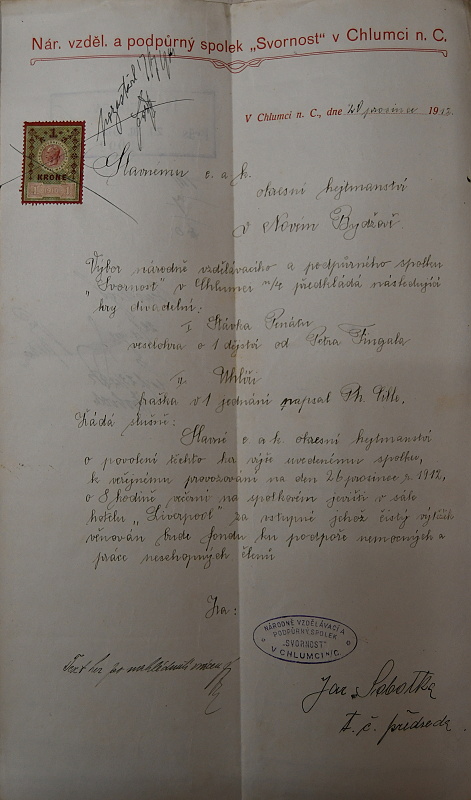 Nár. vzděl. a podpůrný spolek „Svornost“ v Chlumci n. C.
V Chlumci n. C., dne 20 prosince 1912.
1
KRONE
Slavnému c. a k.
okresní hejtmanství
v Novém Bydžově
Výbor národně vzdělávacího a podpůrného spolku
„Svornost“ v Chlumci n/c předkládá následující
hry divadelní:
I Stávka Penátů
veselohra o 1 dějství od Petra Fingala
II Uhlíři
fraška v 1 jednání napsal Ph.
Žádá slušně:
Slavné c. a k. okresní hejtmanství
o povolení těchto her výše uvedenému spolku,
k veřejnému provozování na den 26 prosince r. 1912,
o 8 hodině večerní na spolkovém jevišti v sále
hotelu „Liverpool“ za vstupné jehož čistý výtěžek
věnován bude fondu ku podpoře nemocných a
práce neschopných členů
Za:
NÁRODNĚ VZDĚLÁVACÍ A
PODPŮRNÝ SPOLEK
„SVORNOST“
V CHLUMCI N/C.
Text her po nahlédnutí
Jar. Sobotka
t. č. předseda.